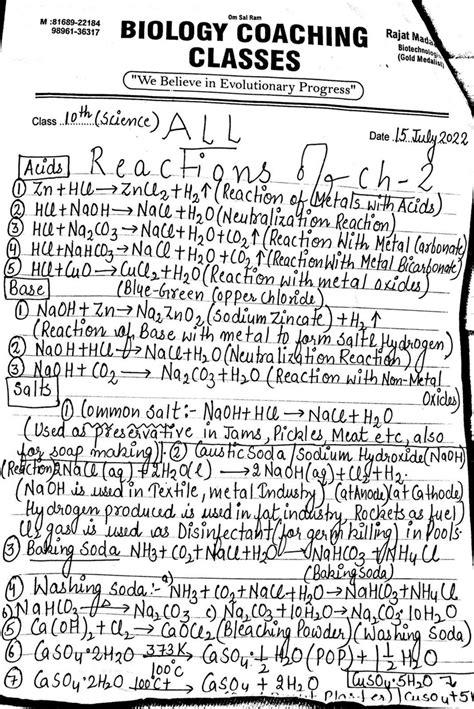 Om Sai Ram
M :81689-22184
98961-36317
BIOLOGY COACHING
CLASSES
Rajat Mada
Biotechnolog
(Gold Medalist
"We Believe in Evolutionary Progress"
Class 10th (Science) ALL Date 15 July 2022
Acids Reactions Of ch-2
① Zn + HCl → ZnCl2 + H2↑ (Reaction of Metals with Acids)
② HCl + NaOH → NaCl + H2O (Neutralization Reaction)
③ HCl + Na2CO3 → NaCl + H2O + CO2↑ (Reaction With Metal Carbonate)
④ HCl + NaHCO3 → NaCl + H2O + CO2↑ (Reaction With Metal Bicarbonate)
⑤ HCl + CuO → CuCl2 + H2O (Reaction with metal oxides)
Base (Blue-Green Copper chloride)
① NaOH + Zn → Na2ZnO2 (Sodium Zincate) + H2↑
(Reaction of Base with metal to form salt & Hydrogen)
② NaOH + HCl → NaCl + H2O (Neutralization Reaction)
③ NaOH + CO2 → Na2CO3 + H2O (Reaction with Non-Metal
Oxides)
Salts
① Common Salt:- NaOH + HCl → NaCl + H2O
(Used as Preservative in Jams, Pickles, Meat etc, also
for soap making) ② Caustic Soda / Sodium Hydroxide (NaOH)
(Reaction) 2NaCl (aq) + 2H2O(l) → 2NaOH(aq) + Cl2 + H2
(NaOH is used in Textile, metal Industry) (at Anode) (at Cathode)
Hydrogen produced is used in fat industry, Rockets as fuel
Cl2 gas is used as Disinfectant (for germ killing) in Pools
③ Baking Soda NH3 + CO2 + NaCl + H2O → NaHCO3 + NH4Cl
(Baking Soda)
④ Washing Soda:- a) NH3 + CO2 + NaCl + H2O → NaHCO3 + NH4Cl
b) NaHCO3 → Na2CO3 c) Na2CO3 + 10H2O → Na2CO3·10H2O
⑤ Ca(OH)2 + Cl2 → CaOCl2 (Bleaching Powder) (Washing Soda)
⑥ CaSO4·2H2O 373K 100°C → CaSO4·1/2 H2O (POP) + 1 1/2 H2O
⑦ CaSO4·2H2O 100°C↑ → CaSO4 + 2H2O CuSO4·5H2O
CuSO4 + 5H